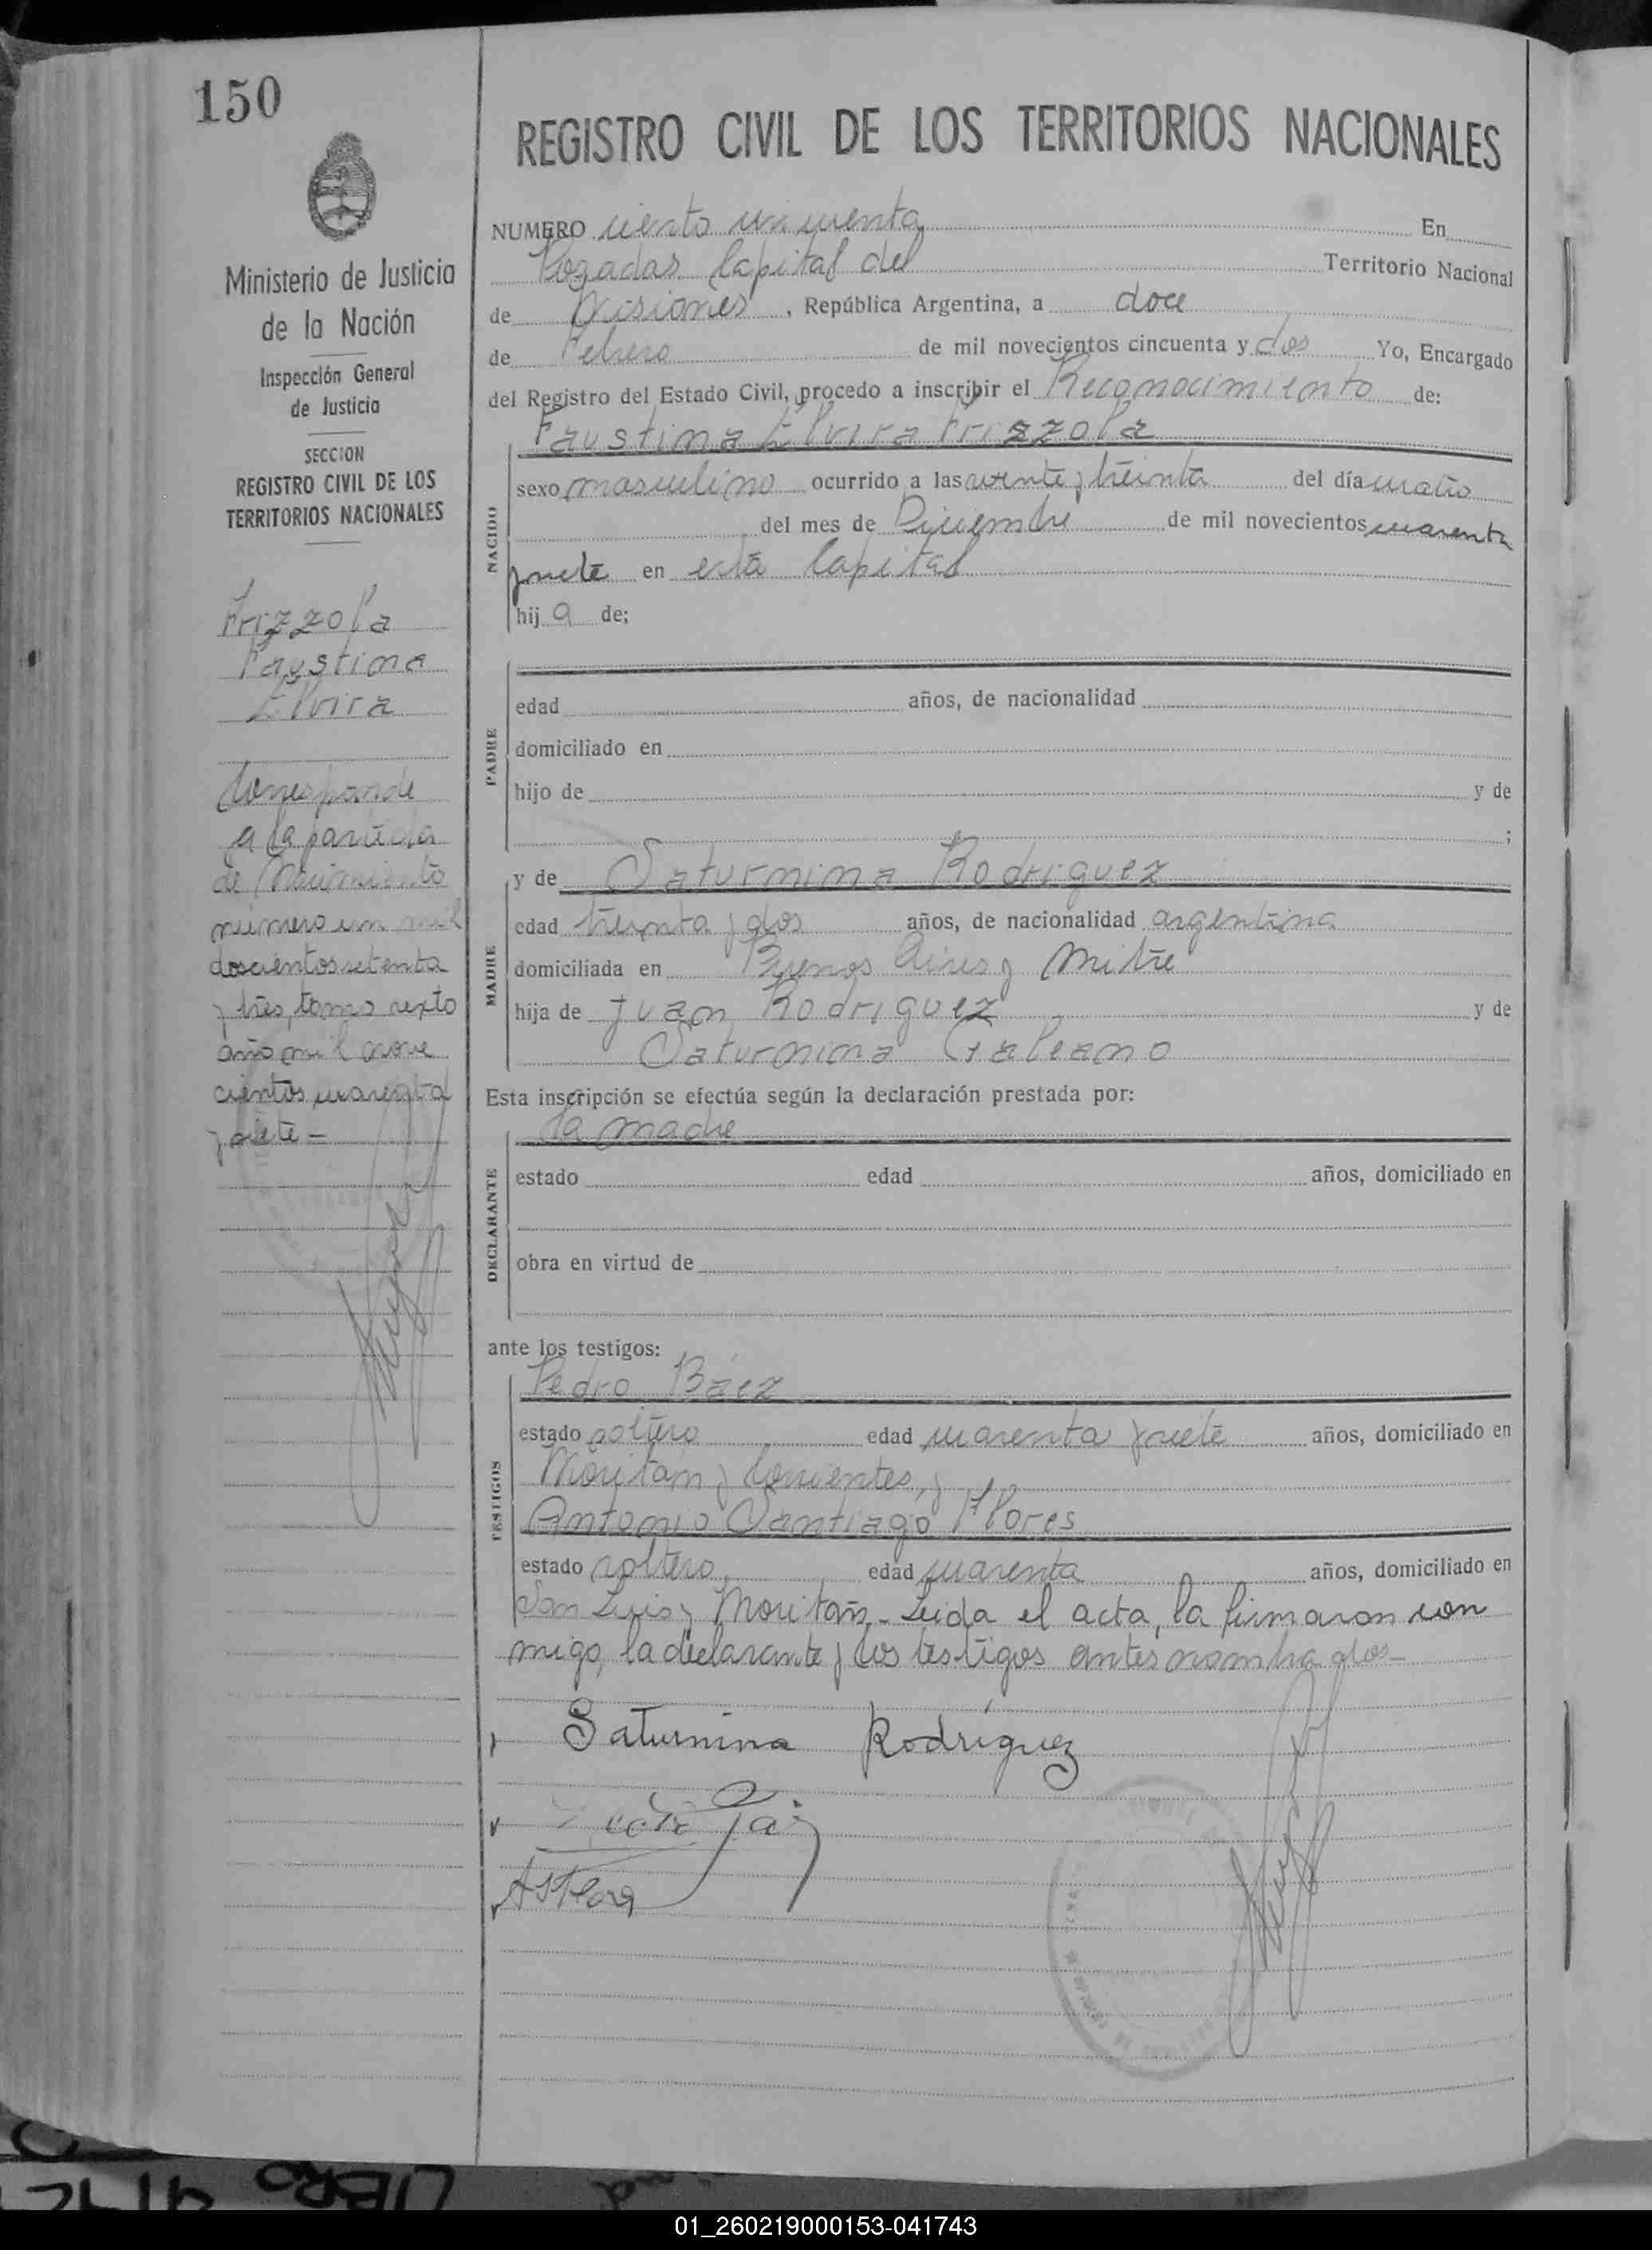 150
REGISTRO CIVIL DE LOS TERRITORIOS NACIONALES
Ministerio de Justicia
de la Nación
Inspección General
de Justicia
SECCION
REGISTRO CIVIL DE LOS
TERRITORIOS NACIONALES
Frizzola
Faustina
Elvira
Corresponde
a la partida
de Nacimiento
número un mil
doscientos setenta
y tres, tomo sexto
año mil nove
cientos cuarenta
y siete -
NUMERO ciento cincuenta En
Posadas Capital del Territorio Nacional
de Misiones, República Argentina, a doce
de Febrero de mil novecientos cincuenta y dos Yo, Encargado
del Registro del Estado Civil, procedo a inscribir el Reconocimiento de:
Faustina Elvira Frizzola
NACIDO
sexo masculino ocurrido a las veinte y treinta del día cuatro
del mes de Diciembre de mil novecientos cuarenta
y siete en esta Capital
hij a de;
PADRE
edad años, de nacionalidad
domiciliado en
hijo de y de
;
MADRE
y de Saturnina Rodriguez
edad treinta y dos años, de nacionalidad argentina
domiciliada en Buenos Aires y Mitre
hija de Juan Rodriguez y de
Saturnina Galeano
Esta inscripción se efectúa según la declaración prestada por:
la madre
DECLARANTE
estado edad años, domiciliado en
obra en virtud de
ante los testigos:
TESTIGOS
Pedro Báez
estado soltero edad cuarenta y siete años, domiciliado en
Moritán y Corrientes, y
Antonio Santiago Flores
estado soltero edad cuarenta años, domiciliado en
San Luis y Moritán - Leida el acta, la firmaron con
migo, la declarante y los testigos antes nombrados -
Saturnina Rodríguez
01_260219000153-041743